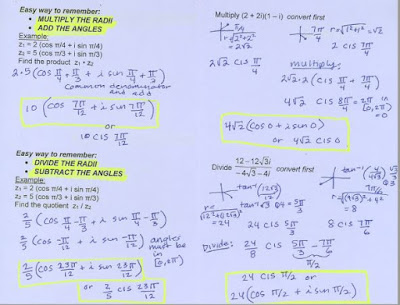 Easy way to remember:
• MULTIPLY THE RADII
• ADD THE ANGLES
Example:
z₁ = 2 (cos π/4 + i sin π/4)
z₂ = 5 (cos π/3 + i sin π/3)
Find the product z₁ · z₂
2·5 (cos π/4 + π/3 + i sin π/4 + π/3)
common denominator
and add
10 (cos 7π/12 + i sin 7π/12)
or
10 cis 7π/12
Easy way to remember:
• DIVIDE THE RADII
• SUBTRACT THE ANGLES
Example:
z₁ = 2 (cos π/4 + i sin π/4)
z₂ = 5 (cos π/3 + i sin π/3)
Find the quotient z₁ / z₂
2/5 (cos π/4 - π/3 + i sin π/4 - π/3)
2/5 (cos -π/12 + i sin -π/12)
angles
must be
in
[0,2π)
2/5 (cos 23π/12 + i sin 23π/12)
or 2/5 cis 23π/12
Multiply (2 + 2i)(1 – i) convert first
π/4
r=√2²+2²
=2√2
2√2 cis π/4
7π/4
r=√1²+1²=√2
√2 cis 7π/4
multiply:
2√2·√2 (cis π/4 + 7π/4)
4√2 cis 8π/4 = 2π in
[0,2π)
=0
4√2 (cos 0 + i sin 0)
or 4√2 cis 0
Divide 12–12√3i / –4√3–4i convert first
tan⁻¹ (12√3/12)
tan⁻¹ √3 Q4 = 5π/3
=24
24 cis 5π/3
tan⁻¹ (4/4√3) Q3
7π/6
r=√(4√3)²+4²
= 8
8 cis 7π/6
Divide: 24/8 cis 5π/3 - 7π/6
π/2
24 cis π/2
or
24 (cos π/2 + i sin π/2)